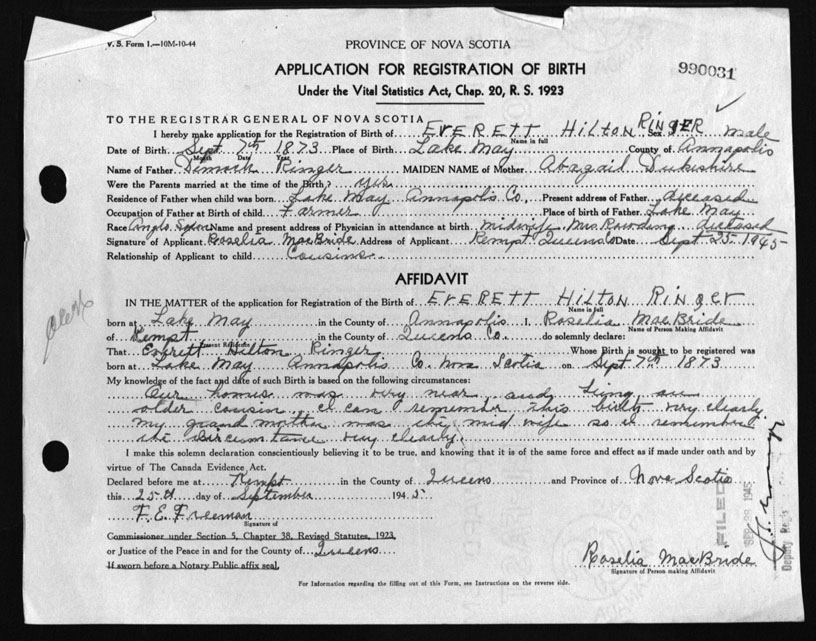 V. S. Form 1.—10M-10-44
PROVINCE OF NOVA SCOTIA
APPLICATION FOR REGISTRATION OF BIRTH
990031
Under the Vital Statistics Act, Chap. 20, R. S. 1923
TO THE REGISTRAR GENERAL OF NOVA SCOTIA
I hereby make application for the Registration of Birth of EVERETT HILTON RINGER Sex male
Name in full
Date of Birth Sept 7th 1873 Place of Birth Lake May County of Annapolis
Month Date Year
Name of Father Dimock Ringer MAIDEN NAME of Mother Abagail Dukeshire
Were the Parents married at the time of the Birth? yes
Residence of Father when child was born Lake May Annapolis Co. Present address of Father deceased
Occupation of Father at Birth of child Farmer Place of birth of Father Lake May
Race Anglo Name and present address of Physician in attendance at birth midwife Mrs deceased
Signature of Applicant Roselia MacBride Address of Applicant Kempt Queens Co Date Sept 25 1945
Relationship of Applicant to child Cousins
AFFIDAVIT
IN THE MATTER of the application for Registration of the Birth of EVERETT HILTON RINGER
Name in full
born at Lake May in the County of Annapolis I, Roselia MacBride
Name of Person Making Affidavit
of Kempt in the County of Queens Co. do solemnly declare:
Present Residence
That Everett Hilton Ringer Whose Birth is sought to be registered was
born at Lake May Annapolis Co. Nova Scotia on Sept 7th 1873
My knowledge of the fact and date of such Birth is based on the following circumstances:
Our homes was very near, and being an
older cousin, I can remember this birth very clearly.
my grand mother was the mid wife so I remember
the circumstance very clearly.
I make this solemn declaration conscientiously believing it to be true, and knowing that it is of the same force and effect as if made under oath and by
virtue of The Canada Evidence Act.
Declared before me at Kempt in the County of Queens and Province of Nova Scotia
this 25th day of September 1945
F. E. Freeman
Signature of
Commissioner under Section 5, Chapter 38, Revised Statutes, 1923,
or Justice of the Peace in and for the County of Queens
If sworn before a Notary Public affix seal.
Roselia MacBride
Signature of Person making Affidavit
For Information regarding the filling out of this Form, see Instructions on the reverse side.
FILED
SEP 28 1945
Deputy Regis